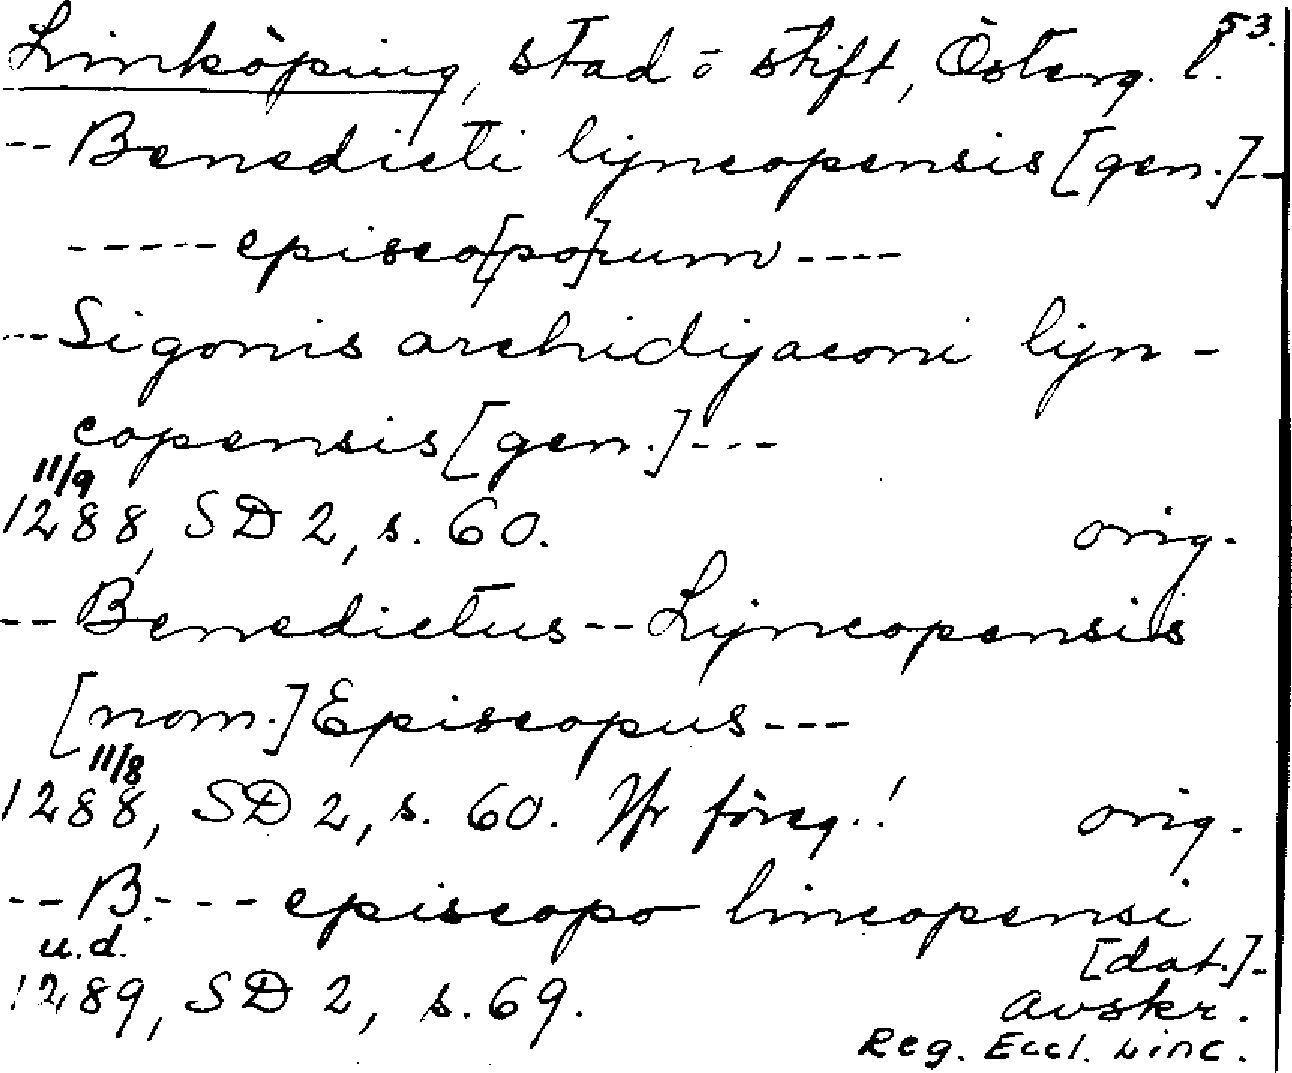 53.
Linköping, stad o stift, Österg. l.
-- Benedicti lijncopensis [gen.] --
----- episco[po]rum ----
-- Sigonis archidijaconi lijn-
copensis [gen.] ---
11/9
1288, SD 2, s. 60. orig.
-- Benedictus -- Lijncopensis
[nom.] Episcopus ---
11/8
1288, SD 2, s. 60. Jfr föreg.! orig.
-- B. --- episcopo lincopensi
u.d. [dat.] -
1289, SD 2, s. 69. avskr.
Reg. Eccl. Linc.